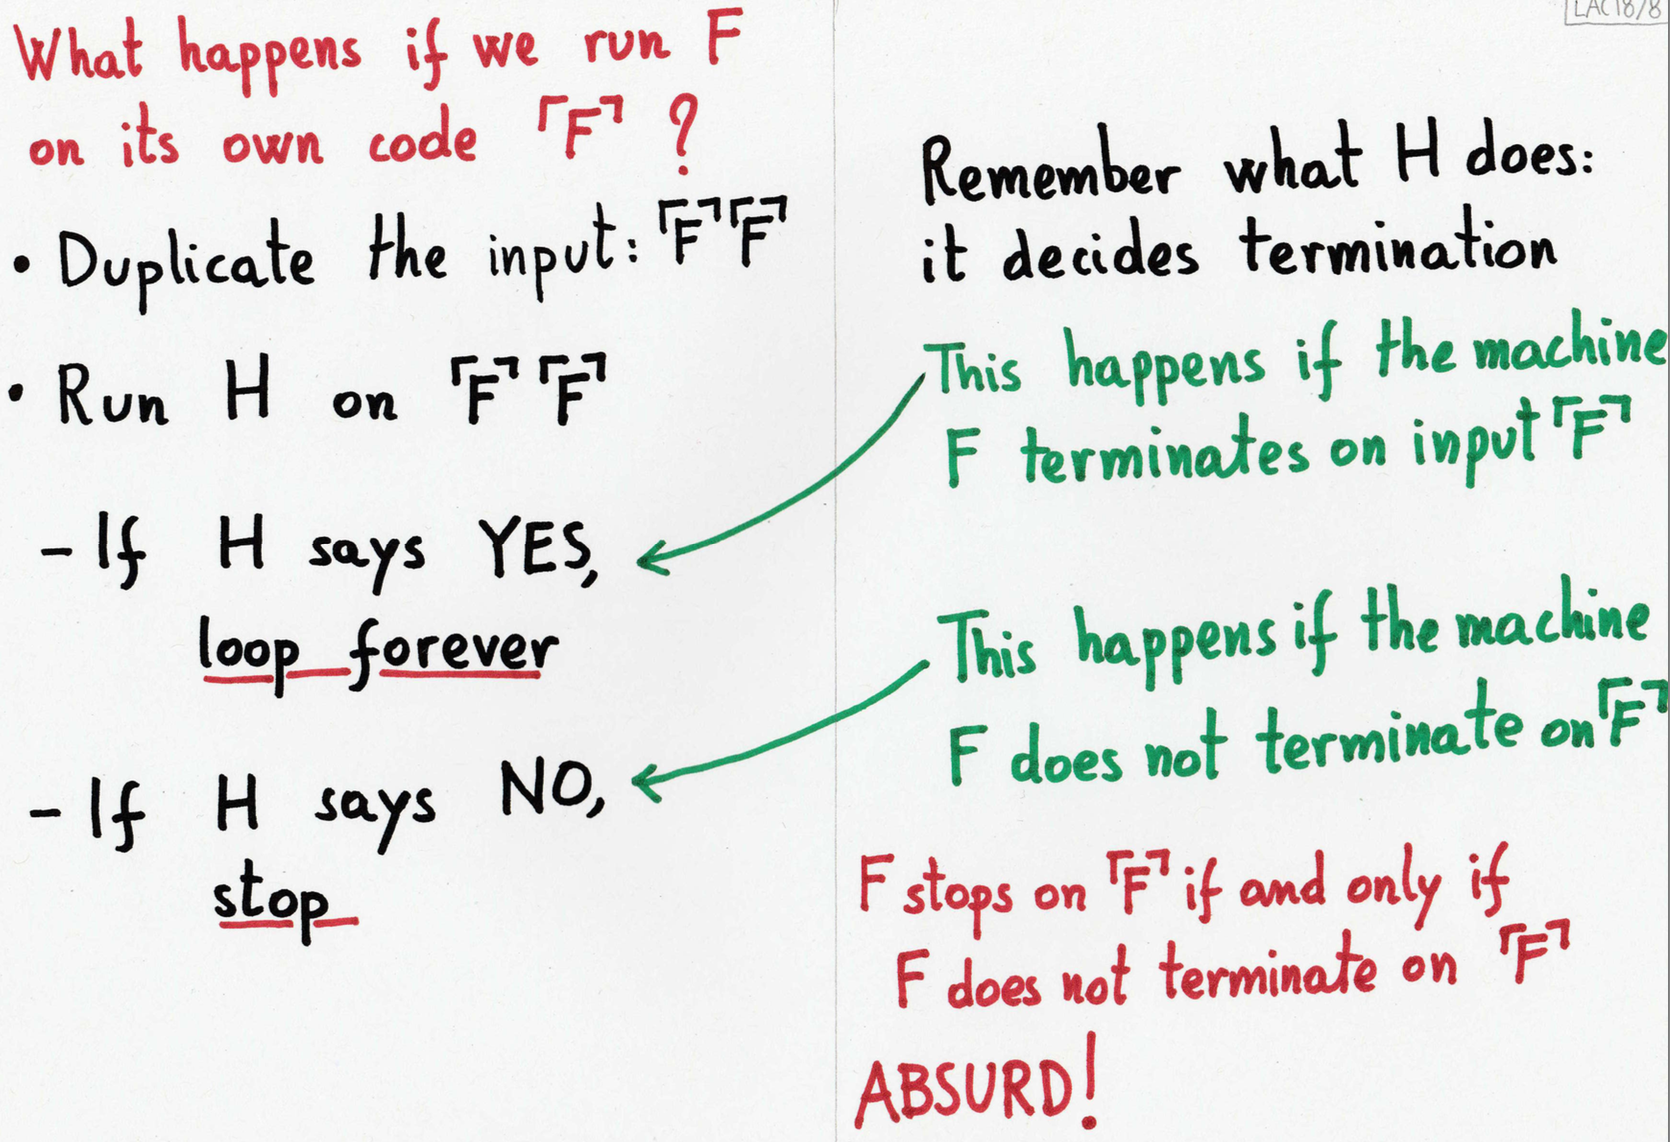 What happens if we run F
on its own code ⌜F⌝ ?
• Duplicate the input: ⌜F⌝⌜F⌝
• Run H on ⌜F⌝ ⌜F⌝
- If H says YES,
loop forever
- If H says NO,
stop
LAC18/8
Remember what H does:
it decides termination
This happens if the machine
F terminates on input ⌜F⌝
This happens if the machine
F does not terminate on ⌜F⌝
F stops on ⌜F⌝ if and only if
F does not terminate on ⌜F⌝
ABSURD!